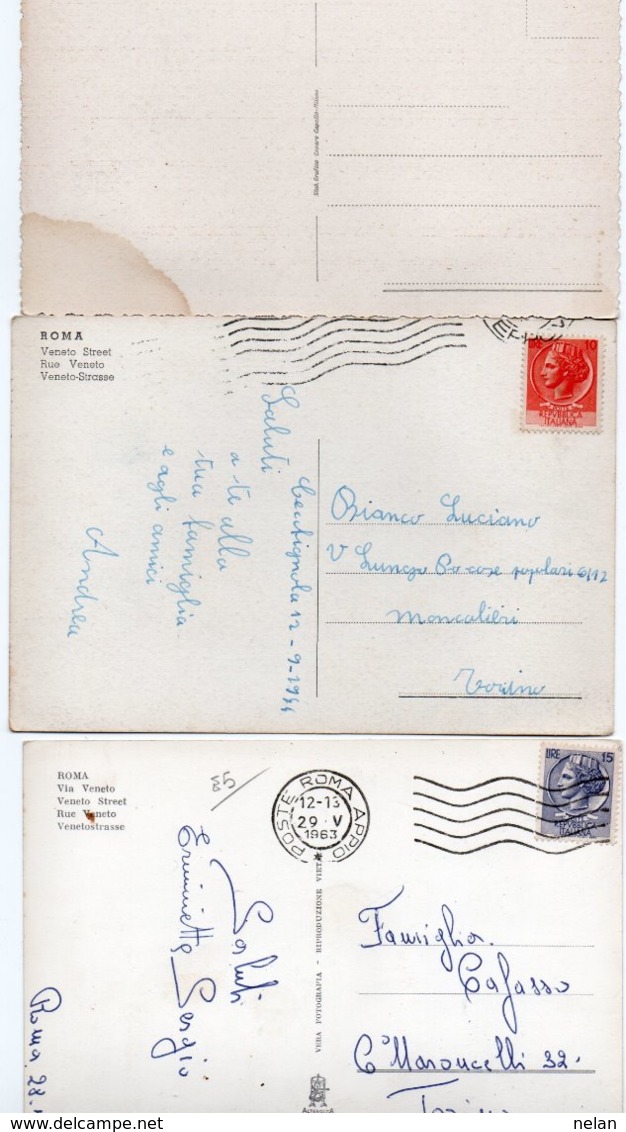 Stab. Grafico Cesare Capello - Milano
ROMA
Veneto Street
Rue Veneto
Veneto-Strasse
LIRE 10
REPVBBLICA
ITALIANA
Saluti
a te alla
tua famiglia
e agli amici
Andrea
12-9-1966
Bianco Luciano
V Lungo Po case popolari 6/12
Moncalieri
Torino
ROMA
Via Veneto
Veneto Street
Rue Veneto
Venetostrasse
85
POSTE ROMA APPIO
12-13
29 · V
1963
LIRE 15
REPVBBLICA
ITALIANA
Saluti
Sergio
Roma 28.
VERA FOTOGRAFIA - RIPRODUZIONE VIETATA
Famiglia
Cafasso
Cº Maroncelli 32
Torino
© nelan